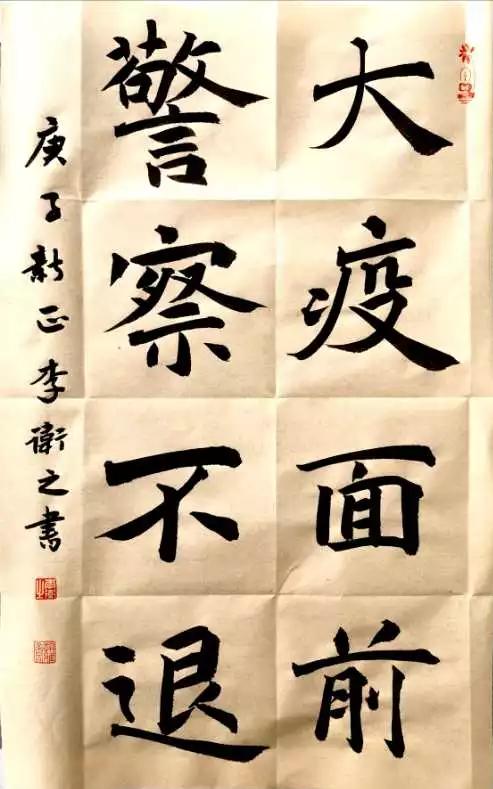 大疫面前
警察不退
庚子新正李衛之書